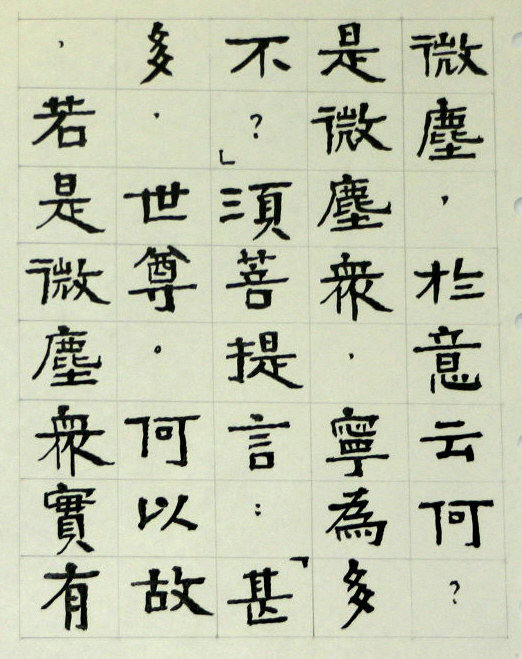 微塵，於意云何？
是微塵衆，寧為多
不？」須菩提言：「甚
多，世尊。何以故
，若是微塵衆實有